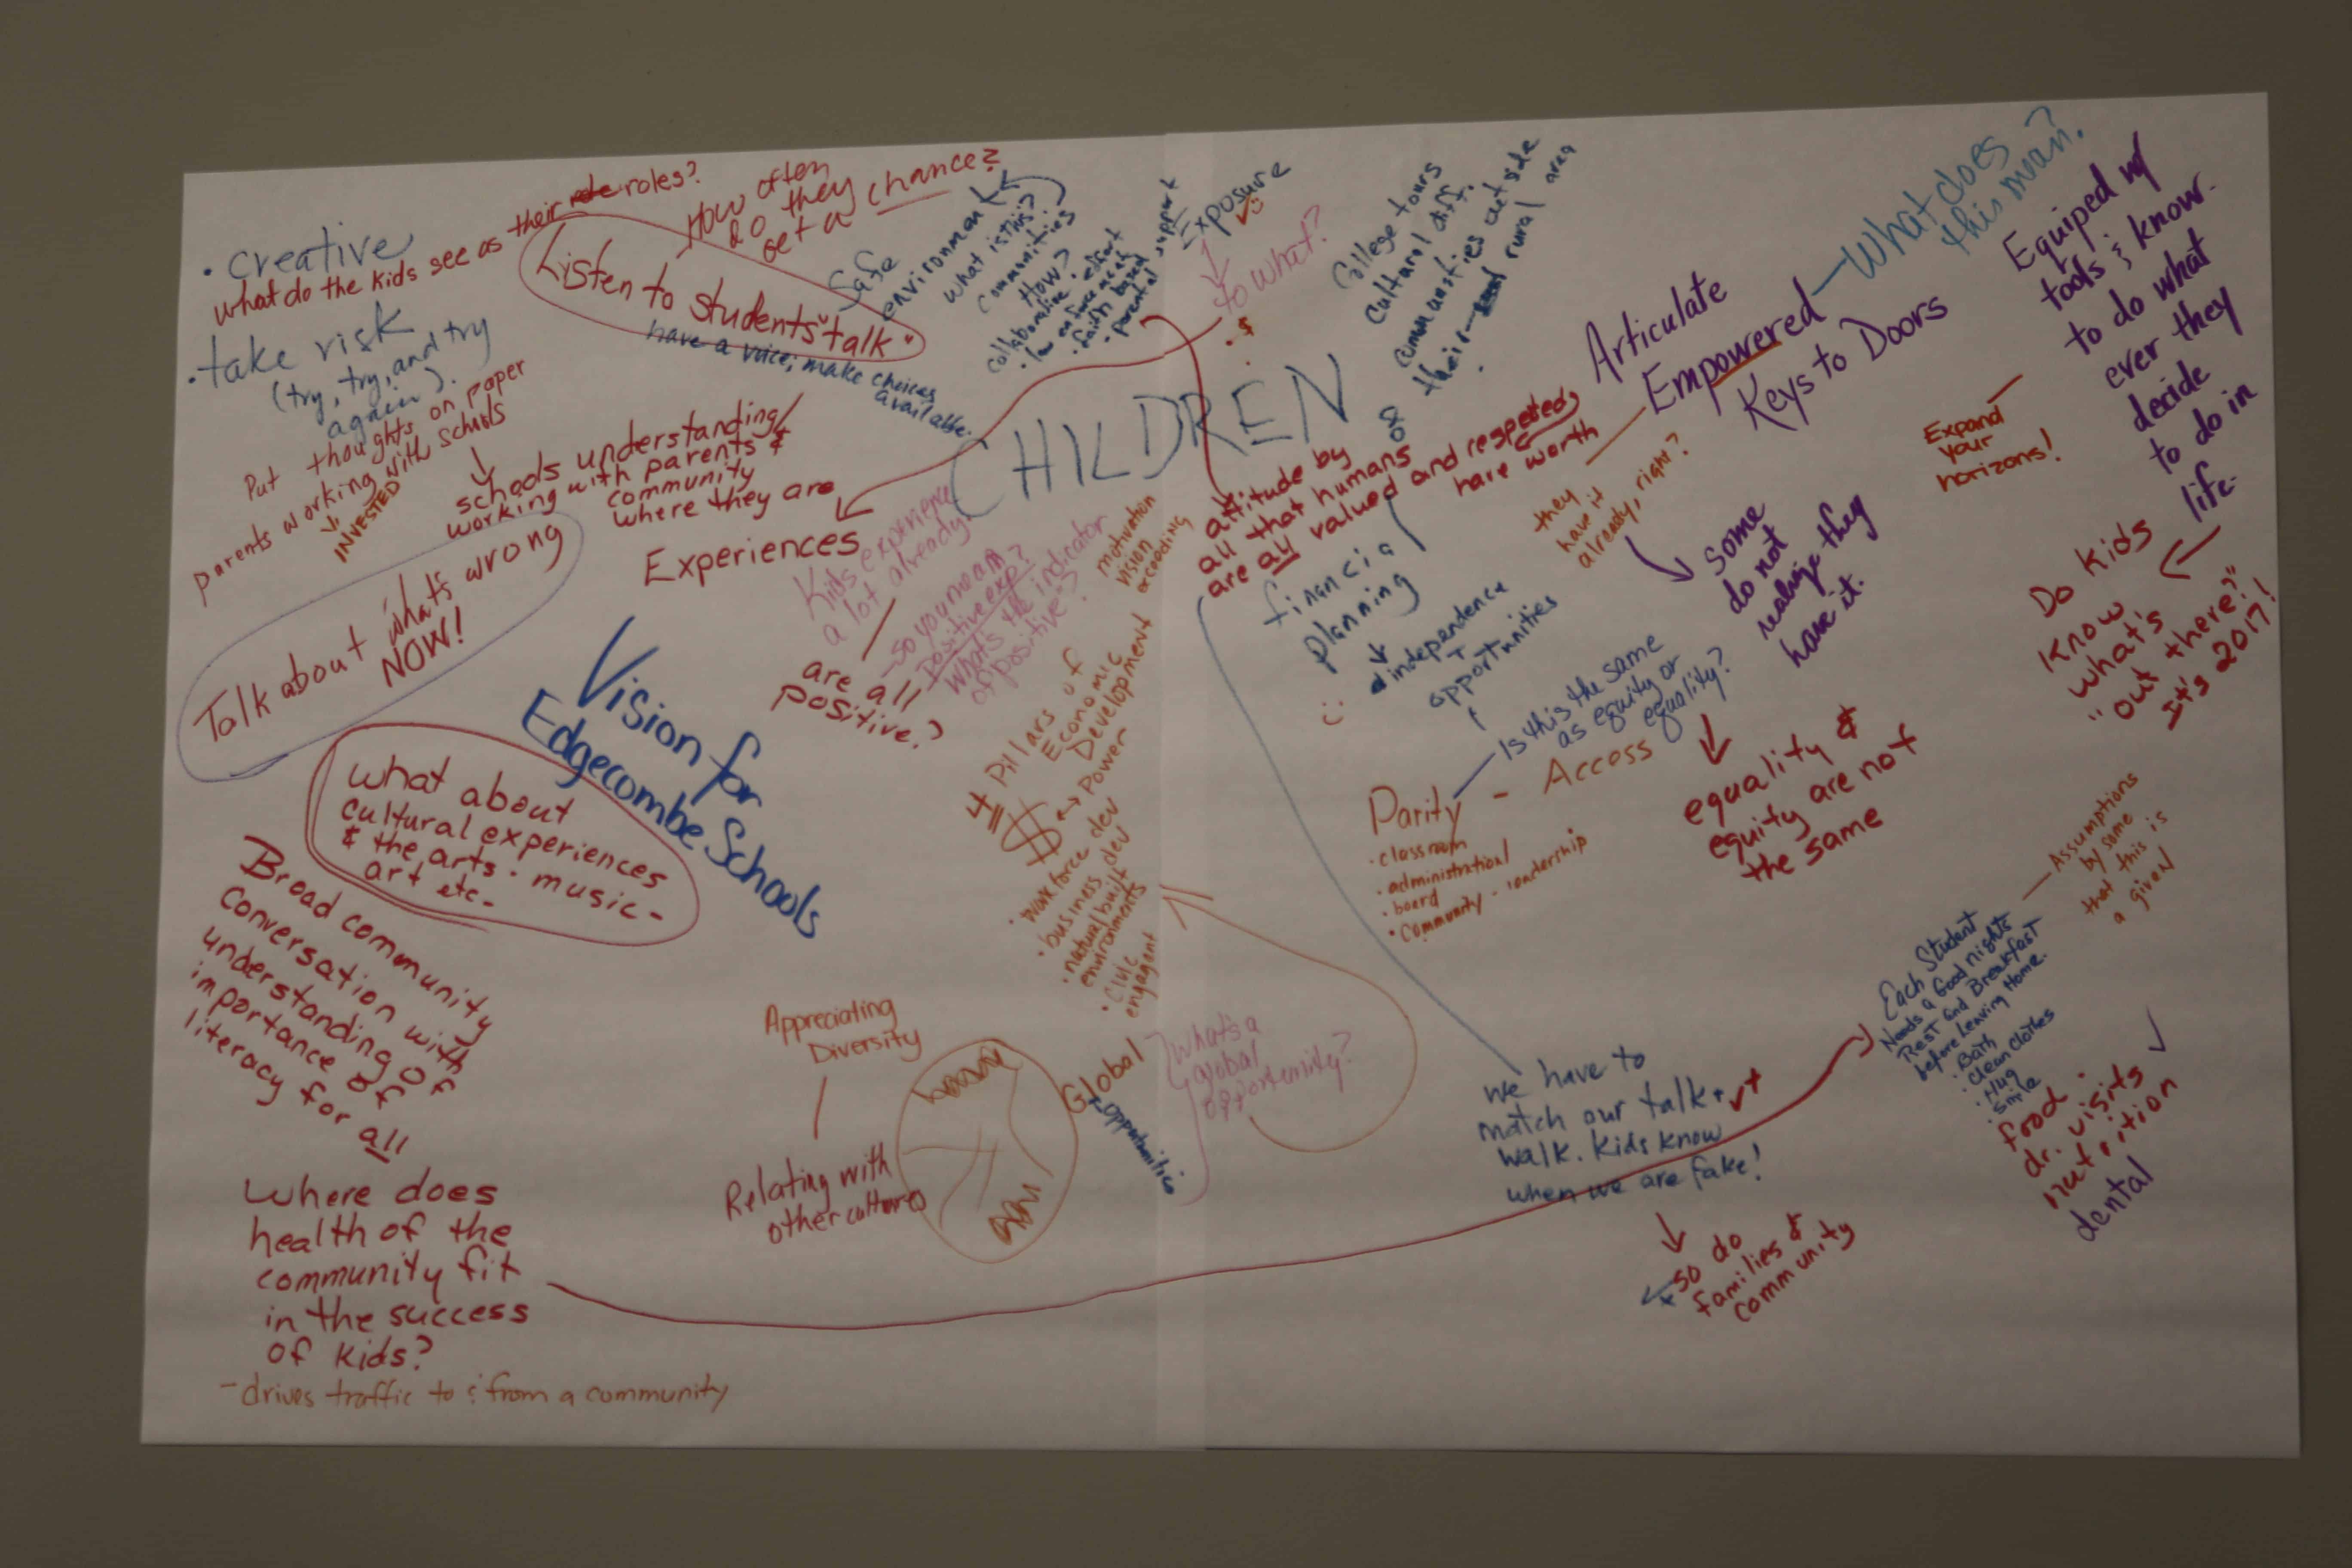 • Creative
what do the kids see as their roles?
• take risk
(try, try, and try
again).
Put thoughts on paper
parents working with schools
INVESTED
schools understanding/
working with parents &
community
where they are
Listen to students "talk"
How often
do they
get a chance?
have a voice; make choices
available.
Safe
environment
what is this?
communities
How?
collaborative effort
• law enforcement
• faith based
• parental support
Exposure
to what?
College tours
Cultural diff.
communities outside
their rural area
CHILDREN
Articulate
Empowered
Keys to Doors
What does
this mean?
Equiped w/
tools & know.
to do what
ever they
decide
to do in
life.
Expand
your
horizons!
Do kids
know
what's
"out there?"
It's 2017!
they
have it
already, right?
some
do not
realize they
have it.
attitude by
all that humans
are all valued and respected,
have worth
Talk about what's wrong
NOW!
Experiences
Kids experience
a lot already.
are all
positive?
- so you mean
positive exp?
What's the indicator
of positive?
motivation
vision
Vision for
Edgecombe Schools
financial
planning
independence
+
opportunities
Is this the same
as equity or
equality?
Parity - Access
• classroom
• administrational
• board
• community - leadership
equality &
equity are not
the same
4 Pillars of
Economic
Development
$ ↔ Power
• Workforce dev
• business dev
• natural built
environments
• Civic
engagent
what about
cultural experiences
& the arts • music -
art etc.
Broad community
conversation with
understanding of
importance of
literacy for all
Appreciating
Diversity
Relating with
other cultures
Global
opportunities
what's a
global
opportunity?
we have to
match our talk +
walk. Kids know
when we are fake!
so do
families &
community
Assumptions
by some
that this is
a given
Each Student
Needs a Good nights
Rest and Breakfast
before Leaving Home.
• Bath
• clean clothes
• Hug
• smile
food.
dr. visits
nutrition
dental
Where does
health of the
community fit
in the success
of kids?
- drives traffic to & from a community